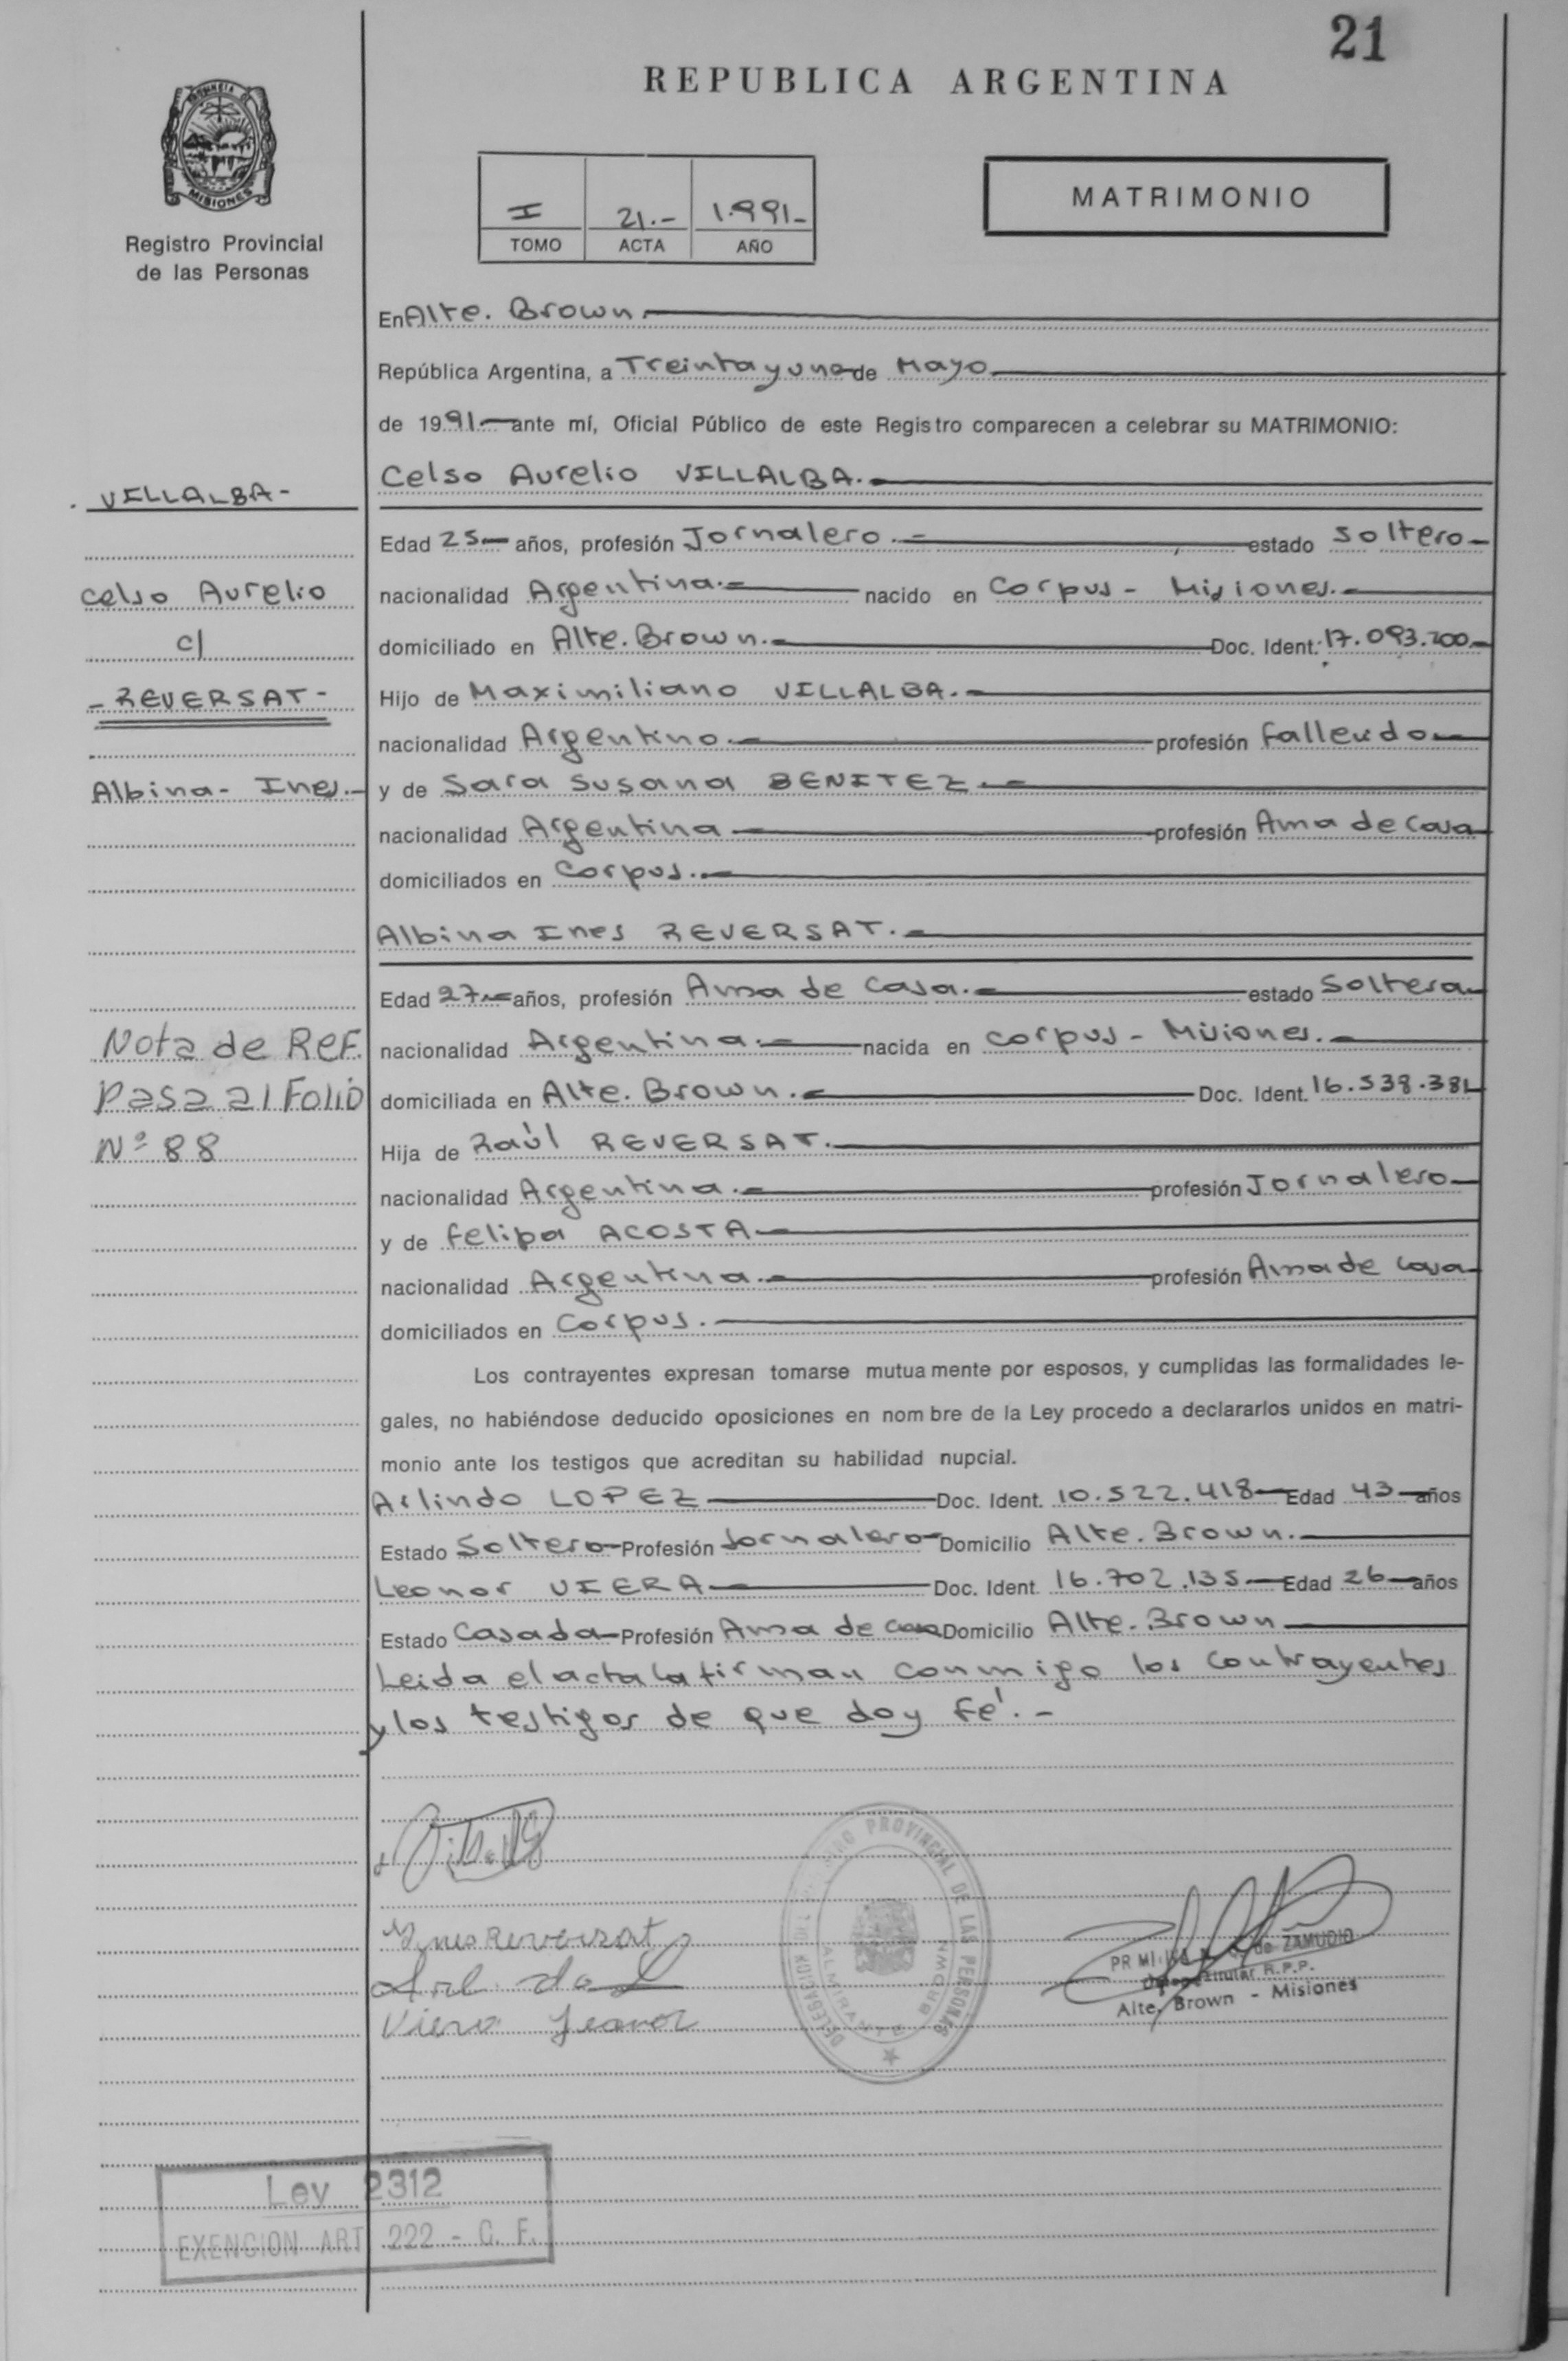 21
REPUBLICA ARGENTINA
PROVINCIA DE
MISIONES
Registro Provincial
de las Personas
I 21.- 1.991-
TOMO ACTA AÑO
MATRIMONIO
En Alte. Brown
República Argentina, a Treinta y uno de Mayo
de 1991 ante mí, Oficial Público de este Registro comparecen a celebrar su MATRIMONIO:
VILLALBA-
Celso Aurelio VILLALBA.
Edad 25 años, profesión Jornalero.- estado Soltero-
Celso Aurelio
nacionalidad Argentina.- nacido en Corpus - Misiones.-
c/
domiciliado en Alte. Brown.- Doc. Ident. 17.093.700-
- REVERSAT -
Hijo de Maximiliano VILLALBA.-
nacionalidad Argentino.- profesión Fallecido
Albina - Ines.-
y de Sara Susana BENITEZ.-
nacionalidad Argentina profesión Ama de Casa
domiciliados en Corpus.-
Albina Ines REVERSAT.-
Edad 27 años, profesión Ama de Casa.- estado Soltera
Nota de Ref.
nacionalidad Argentina.- nacida en Corpus - Misiones.-
Pasa al Folio
domiciliada en Alte. Brown.- Doc. Ident. 16.538.381
Nº 88
Hija de Raúl REVERSAT.
nacionalidad Argentina.- profesión Jornalero
y de Felipa ACOSTA
nacionalidad Argentina.- profesión Ama de Casa
domiciliados en Corpus.-
Los contrayentes expresan tomarse mutuamente por esposos, y cumplidas las formalidades le-
gales, no habiéndose deducido oposiciones en nombre de la Ley procedo a declararlos unidos en matri-
monio ante los testigos que acreditan su habilidad nupcial.
Arlindo LOPEZ Doc. Ident. 10.522.418 Edad 43 años
Estado Soltero Profesión Jornalero Domicilio Alte. Brown.
Leonor VIERA Doc. Ident. 16.702.135 Edad 26 años
Estado Casada Profesión Ama de Casa Domicilio Alte. Brown
Leida el acta la firman conmigo los contrayentes
y los testigos de que doy fé.-
Ynes Reversat
Viera Leonor
DELEGACION DEL REGISTRO PROVINCIAL DE LAS PERSONAS
ALMIRANTE BROWN
de ZAMUDIO
Titular R.P.P.
Alte. Brown - Misiones
Ley 2312
EXENCION ART 222 - C. F.